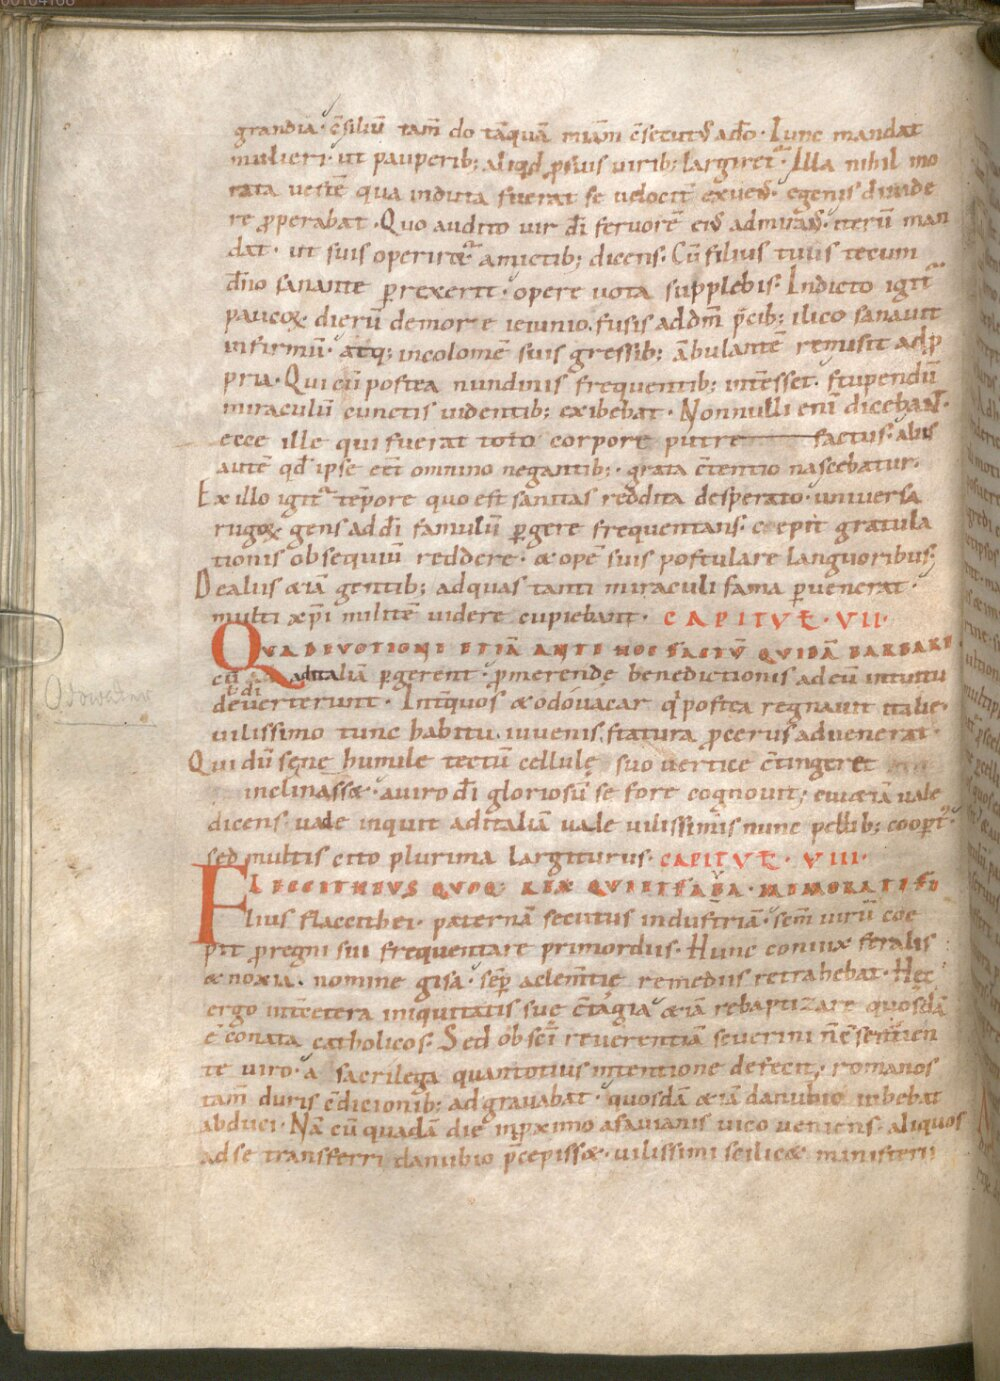 grandia· c̄siliū tam̄ do tāquā miam̄ c̄secut᷒ a dō· Tunc mandat
mulieri· ut pauperib; aliqd ꝓpriis uirib; largiret᷑· Illa nihil mo
rata uestē qua induta fuerat se uelocit̄ exuens· egenis diuide
re ꝓperabat· Quo audito uir dī feruorē ei᷒ admirans· iterū man
dat· ut suis operiret᷑ amictib; dicens· Cū filius tuus tecum
dn̄o sanante ꝑrexerit· opere uota supplebis: Indicto igit᷑
paucoꝝ dierū de more ieiunio, fusis ad dm̄ p̄cib; ilico sanauit
infirmū· atq; incolomē suis gressib; ābulantē remisit ad ꝓ
pria· Qui cū postea nundinis frequentib; intēesset· stupendū
miraculū cunctis uidentib; exibebat· Nonnulli enī dicebant·
ecce ille qui fuerat toto corpore putre factus· aliis
autē qd̄ ipse eēt omnino negantib;· grata c̄tentio nascebatur·
Ex illo igit᷑ tēpore quo est sanitas reddita desperato· uniuersa
rugoꝝ gens ad dī famulū ꝑgere frequentans· coepit gratula
tionis obsequiū reddere· & opē suis postulare languoribus;
De aliis & iā gentib; ad quas tanti miraculi fama ꝑuenerat·
multi xp̄i militē uidere cupiebant· CAPITVŁ· VII·
QUA DEVOTIONE ETIĀ ANTE HOC FACTV̄ QVIDĀ BARBARI·
cū ad italiā ꝑgerent· ꝓmerende benedictionis ad eū intuitu
deuerterunt· Int̄ quos & odouacar q̇ postea regnauit italie·
uilissimo tunc habitu, iuuenis, statura ꝓcerus aduenerat·
Qui dū se ne humile tectū cellulę suo uertice c̄tingeret
inclinass&· a uiro dī gloriosū se fore cognouit; cui & iā uale
dicens· uade inquit ad italiā uale uilissimis nunc pellib; coopt᷒·
sed multis cito plurima largiturus· CAPITVŁ· VIII·
FELECCTHEVS QVOQ; REX QVI ET FAB̄A· MEMORATI FI
lius flaccithei· paternā secutus industriā· sem̄ uirū coe
pit ꝓ regni sui frequentare primordiis· Hunc coniux feralis
& noxia· nomine gisa· sēꝑ a clem̄tię remediis retrahebat· Hęc
ergo int̄ cetera iniquitatis suę c̄tagia & iā rebaptizare quosdā
ē conata catholicos: Sed ob sc̄i reuerentiā seuerini n̄ c̄sentien
te uiro· a sacrilega quantotius intentione defecit; romanos
tam̄ duris c̄dicionib; adgrauabat· quosdā & iā danubio iubebat
abduci· Nā cū quadā die in ꝓximo a fauianis uico ueniens· aliquos
ad se transferri danubio p̄cepiss&· uilissimi scilic& ministerii